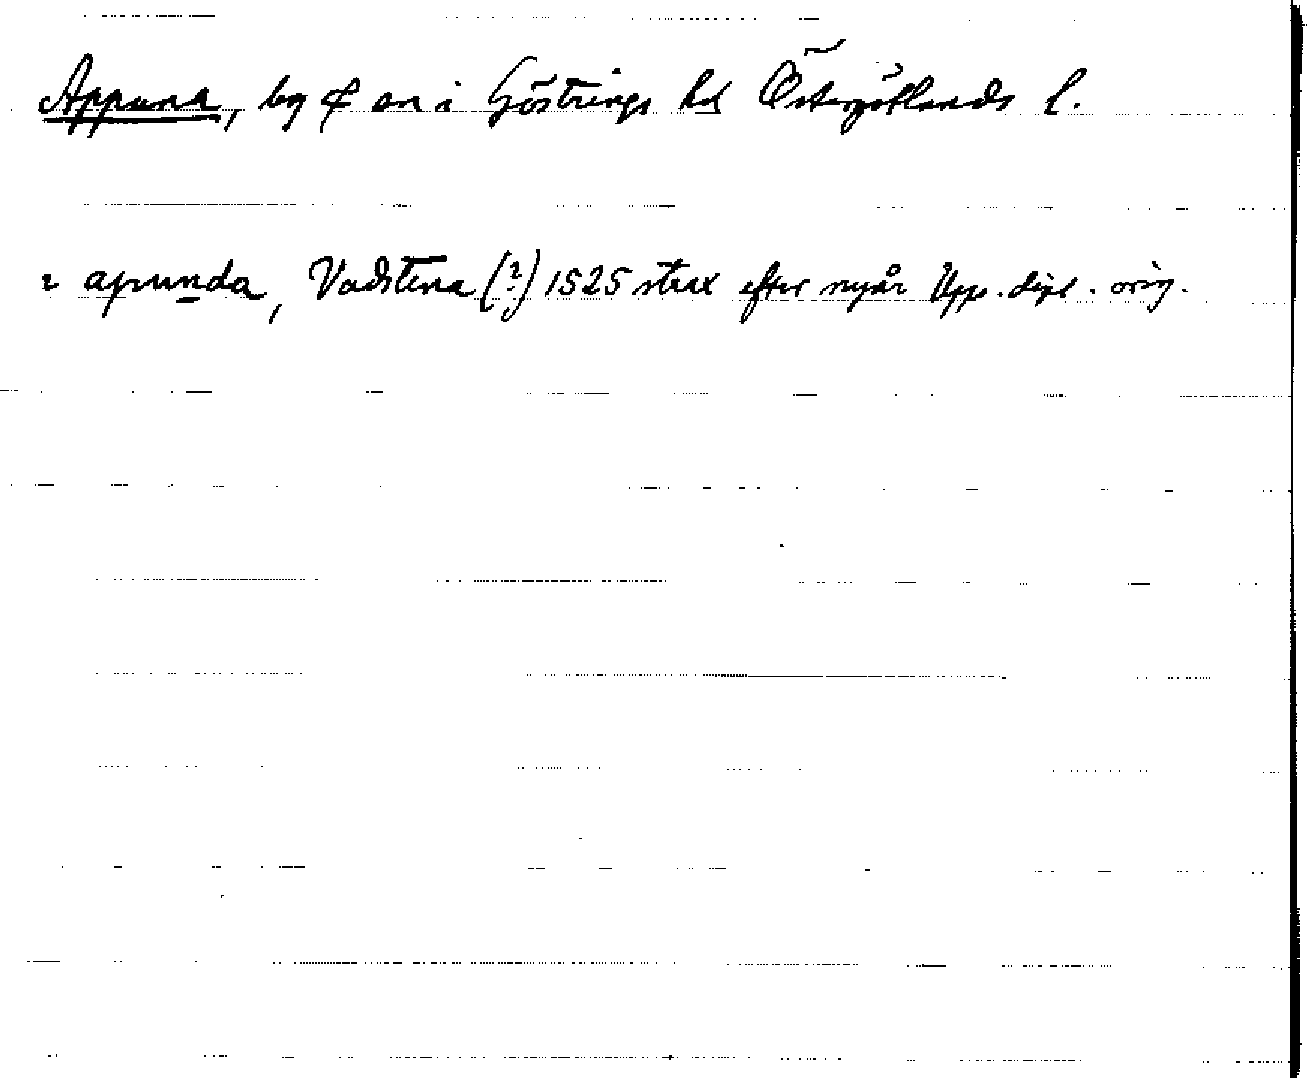 Appuna, by ₵ sn i Göstrings hd Östergötlands l.
i apunda, Vadstena (?) 1525 strax efter nyår Upp. dipl. orig.